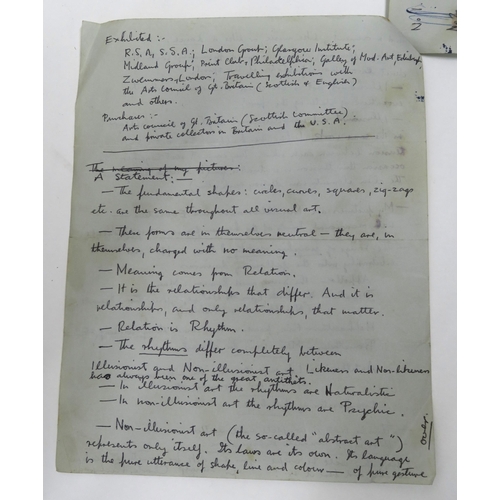 Exhibited :-
R.S.A, S.S.A.; London Group; Glasgow Institute;
Midland Group; Print Club, Philadelphia; Gallery of Mod. Art, Edinburgh
Zwemmers, London; Travelling exhibitions with
the Arts Council of Gt. Britain (Scottish & English)
and others.
Purchases :-
Arts Council of Gt. Britain (Scottish Committee)
and private collectors in Britain and the U.S.A.
The meaning of my pictures:
A Statement: —
— The fundamental shapes: circles, curves, squares, zig-zags
etc. are the same throughout all visual art.
— These forms are in themselves neutral — they are, in
themselves, charged with no meaning.
— Meaning comes from Relation.
— It is the relationships that differ. And it is
relationships, and only relationships, that matter.
— Relation is Rhythm.
— The rhythms differ completely between
Illusionist and Non-illusionist art. Likeness and Non-likeness
has always been one of the great antitheses.
— In illusionist art the rhythms are Naturalistic
— In non-illusionist art the rhythms are Psychic.
— Non-illusionist art (the so-called "abstract art")
represents only itself. Its laws are its own. Its language
is the pure utterance of shape, line and colour — of pure gesture
over.